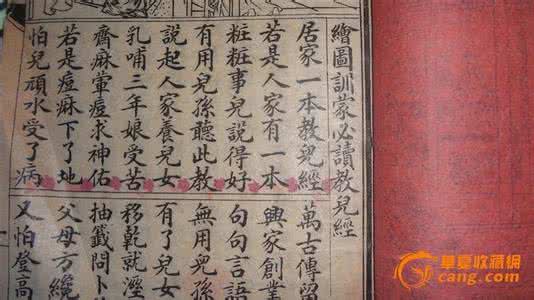 繪圖訓蒙必讀教兒經
居家一本教兒經 萬古傳留
若是人家有一本 興家創業
粧粧事兒說得好 句句言語
有用兒孫聽此教 無用兒孫
說起人家養兒女 有了兒女
乳哺三年娘受苦 移乾就溼
齋麻葷痘求神佑 抽籤問卜
若是痘麻下了地 父母方纔
怕兒頑水受了病 又怕登高
華夏收藏網
cang.com